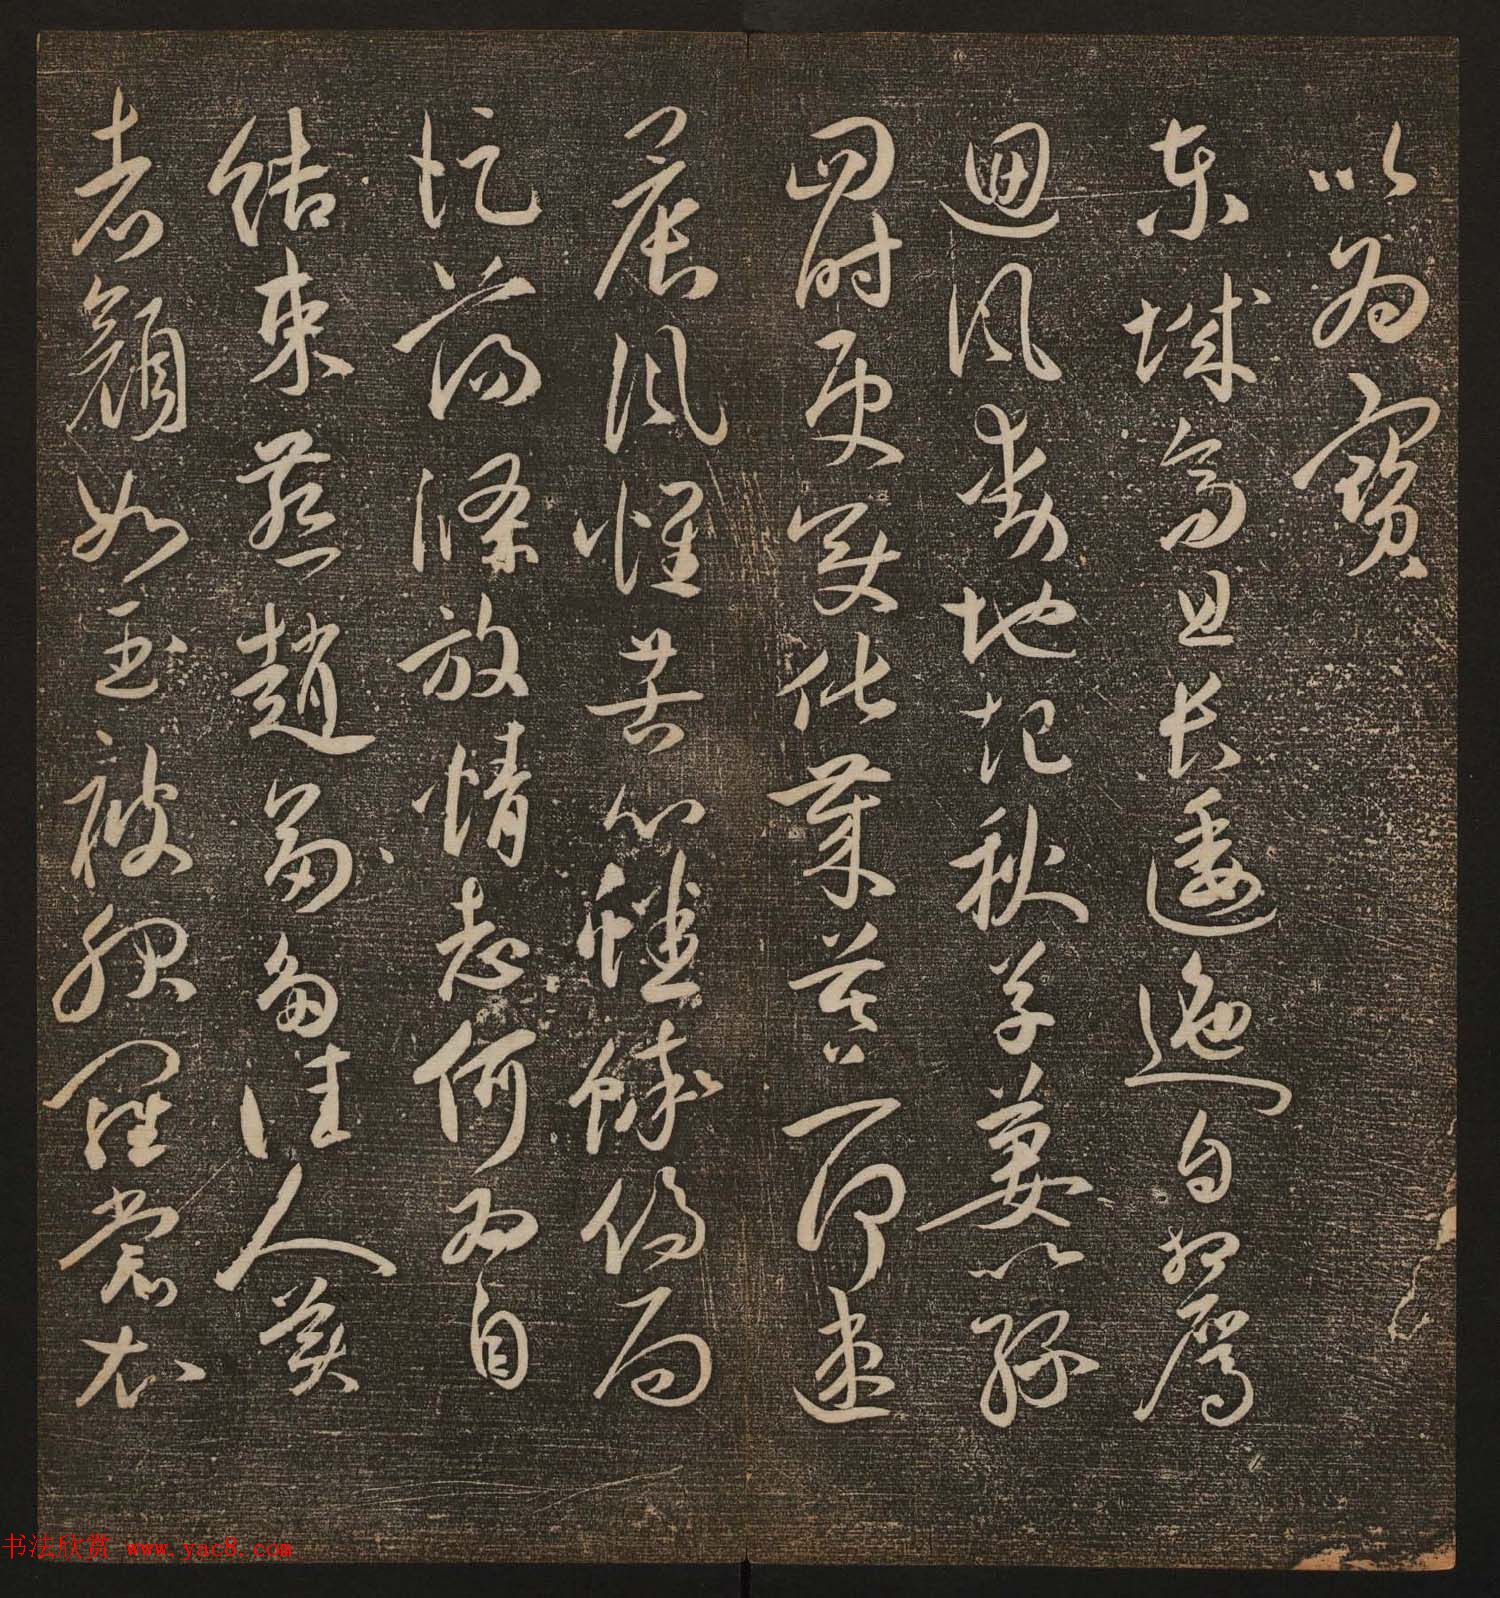 以為寶
東城高且長逶迤自相屬
迴風動地起秋草萋以綠
四時更變化歲暮一何速
晨風懷苦心蟋蟀傷局
促蕩滌放情志何為自
結束燕趙多佳人美
者顏如玉被服羅裳衣
书法欣赏 www.yac8.com